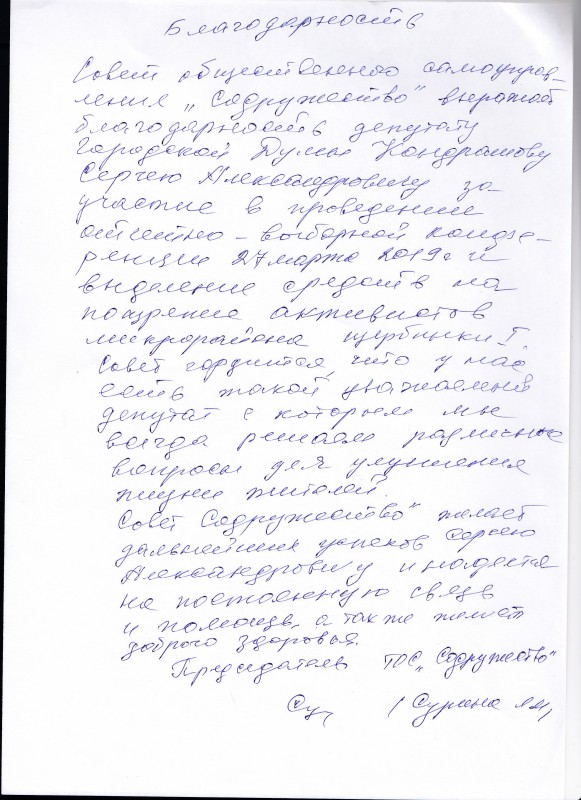 Благодарность
Совет общественного самоуправ-
ления „Содружество" выражает
благодарность депутату
Городской Думы Кондрашову
Сергею Александровичу за
участие в проведении
отчетно-выборной конфе-
ренции 27 марта 2019 г и
выделение средств на
поощрение активистов
микрорайона Щербинки I.
Совет гордится, что у нас
есть такой уважаемый
депутат с которым мы
всегда решаем различные
вопросы для улучшения
жизни жителей.
Совет Содружество" желает
дальнейших успехов Сергею
Александровичу и надеется
на постоянную связь
и помощь, а также желает
доброго здоровья.
Председатель ТОС „Содружество"
(Сурина